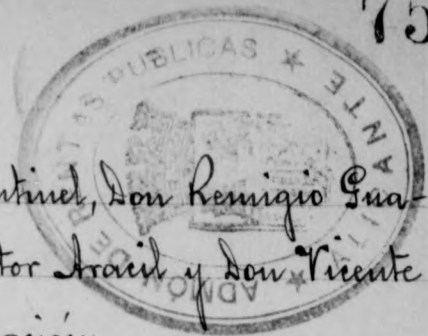 75
ADMÓN DE RENTAS PUBLICAS ★ ALICANTE ★
ntinel, Don Remigio Gua-
tor Aracil y Don Vicente